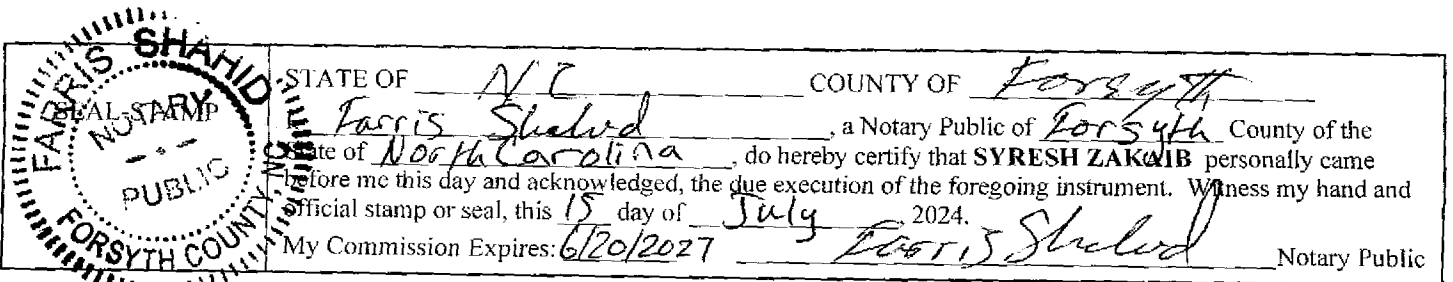 FARRIS SHAHID
NOTARY
PUBLIC
FORSYTH COUNTY, NC
SEAL-STAMP
STATE OF NC COUNTY OF Forsyth
Farris Shahid, a Notary Public of Forsyth County of the
State of North Carolina, do hereby certify that SYRESH ZAKAIB personally came
before me this day and acknowledged, the due execution of the foregoing instrument. Witness my hand and
official stamp or seal, this 15 day of July, 2024.
My Commission Expires: 6/20/2027 Farris Shahid Notary Public